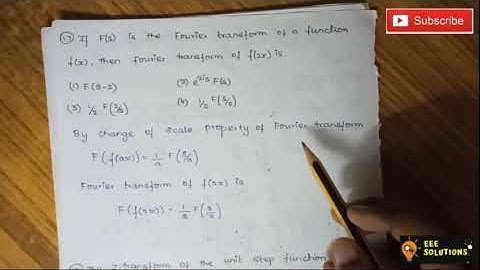 Subscribe
(17) If F(s) is the Fourier transform of a function
f(x), then Fourier transform of f(2x) is
(1) F(s-2) (2) e^{2is} F(s)
(3) 1/2 F(2/s) (4) 1/2 F(s/2)
By change of scale property of Fourier transform
F(f(ax)) = 1/a F(s/a)
Fourier transform of f(2x) is
F(f(2x)) = 1/2 F(s/2)
z-transform of the unit step function
EEE
SOLUTIONS